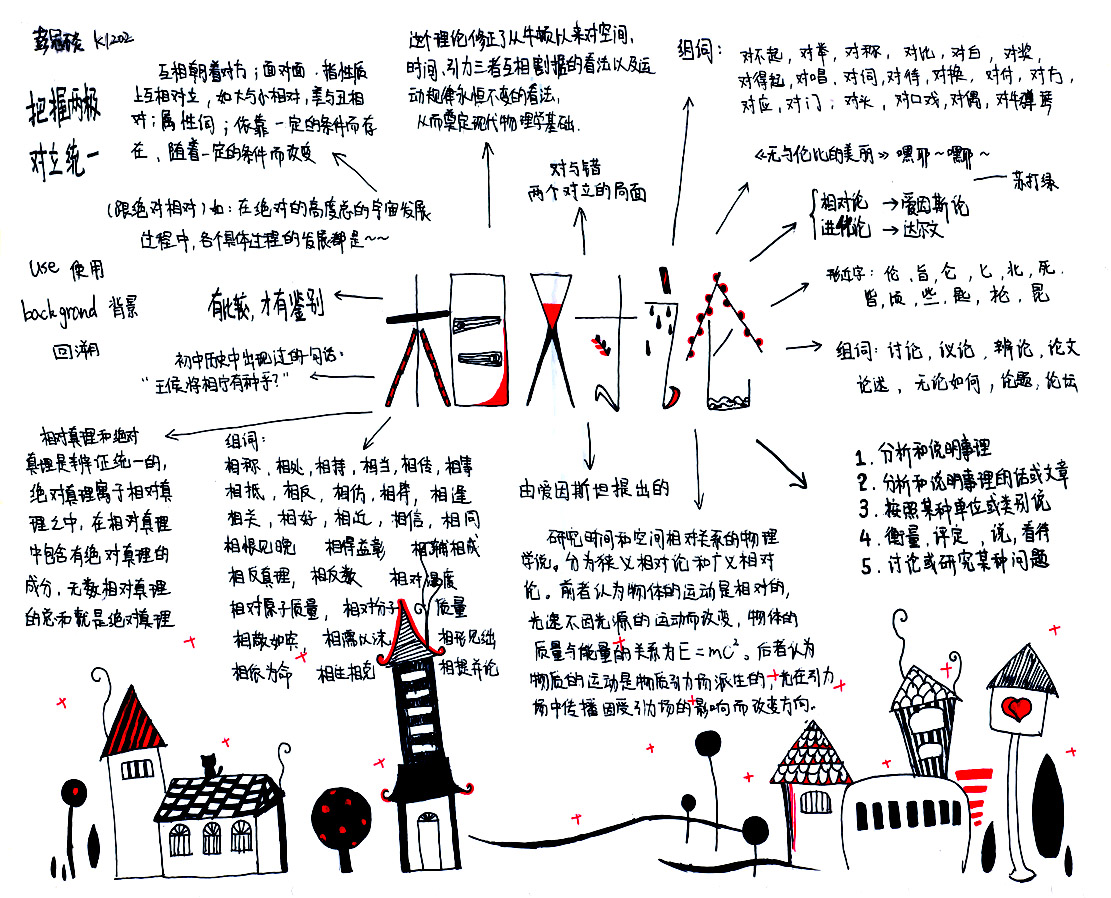 K1202
把握两极
对立统一
互相朝着对方；面对面．指性质
上互相对立，如大与小相对，美与丑相
对；属性词；依靠一定的条件而存
在，随着一定的条件而改变
(跟绝对相对)如：在绝对的高度总的宇宙发展
过程中，各个具体过程的发展都是~~
use 使用
backgrond 背景
回溯
有比较，才有鉴别
初中历史中出现过的一句话：
"王侯将相宁有种乎？"
相对真理和绝对
真理是辩证统一的，
绝对真理寓于相对真
理之中，在相对真理
中包含有绝对真理的
成分，无数相对真理
的总和就是绝对真理
组词：
相称，相处，相持，相当，相传，相事
相抵，相反，相仿，相得，相逢
相关，相好，相近，相信，相同
相恨见晚 相得益彰 相辅相成
相反真理，相反数 相对湿度
相对原子质量，相对分子质量
相敬如宾 相濡以沫 相形见绌
相依为命 相生相克 相提并论
这个理论修正了从牛顿以来对空间，
时间，引力三者互相割据的看法以及运
动规律永恒不变的看法，
从而奠定现代物理学基础．
对与错
两个对立的局面
相对论
由爱因斯坦提出的
研究时间和空间相对关系的物理
学说。分为狭义相对论和广义相对
论。前者认为物体的运动是相对的，
光速不因光源的运动而改变，物体的
质量与能量的关系为E=mc²。后者认为
物质的运动是物质引力场派生的，光在引力
场中传播因受引力场的影响而改变方向。
组词：
对不起，对举，对称，对比，对白，对奖，
对得起，对唱，对词，对待，对换，对付，对方，
对应，对门；对头，对口戏，对偶，对牛弹琴
《无与伦比的美丽》嘿耶~嘿耶~
苏打绿
相对论 → 爱因斯论
进化论 → 达尔文
形近字：伦，旨，仑，匕，北，死．
皆，顷，些，匙，枪，昆
组词：讨论，议论，辩论，论文
论述，无论如何，论题，论坛
1. 分析和说明事理
2. 分析和说明事理的话或文章
3. 按照某种单位或类别说
4. 衡量，评定，说，看待
5. 讨论或研究某种问题